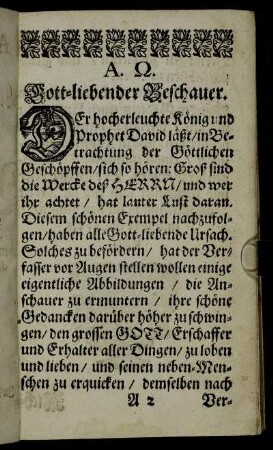 A. Ω.
Gott-liebender Beschauer.
DEr hocherleuchte König und
Prophet David läßt/ in Be-
trachtung der Göttlichen
Geschöpffen/ sich so hören: Groß sind
die Wercke deß HERRN/ und wer
ihr achtet/ hat lauter Lust daran.
Diesem schönen Exempel nachzufol-
gen/ haben alle Gott-liebende Ursach.
Solches zu befördern/ hat der Ver-
fasser vor Augen stellen wollen einige
eigentliche Abbildungen/ die An-
schauer zu ermuntern/ ihre schöne
Gedancken darüber höher zu schwin-
gen/ den grossen GOTT/ Erschaffer
und Erhalter aller Dingen/ zu loben
und lieben/ und seinen neben-Men-
schen zu erquicken/ demselben nach
A 2 Ver-